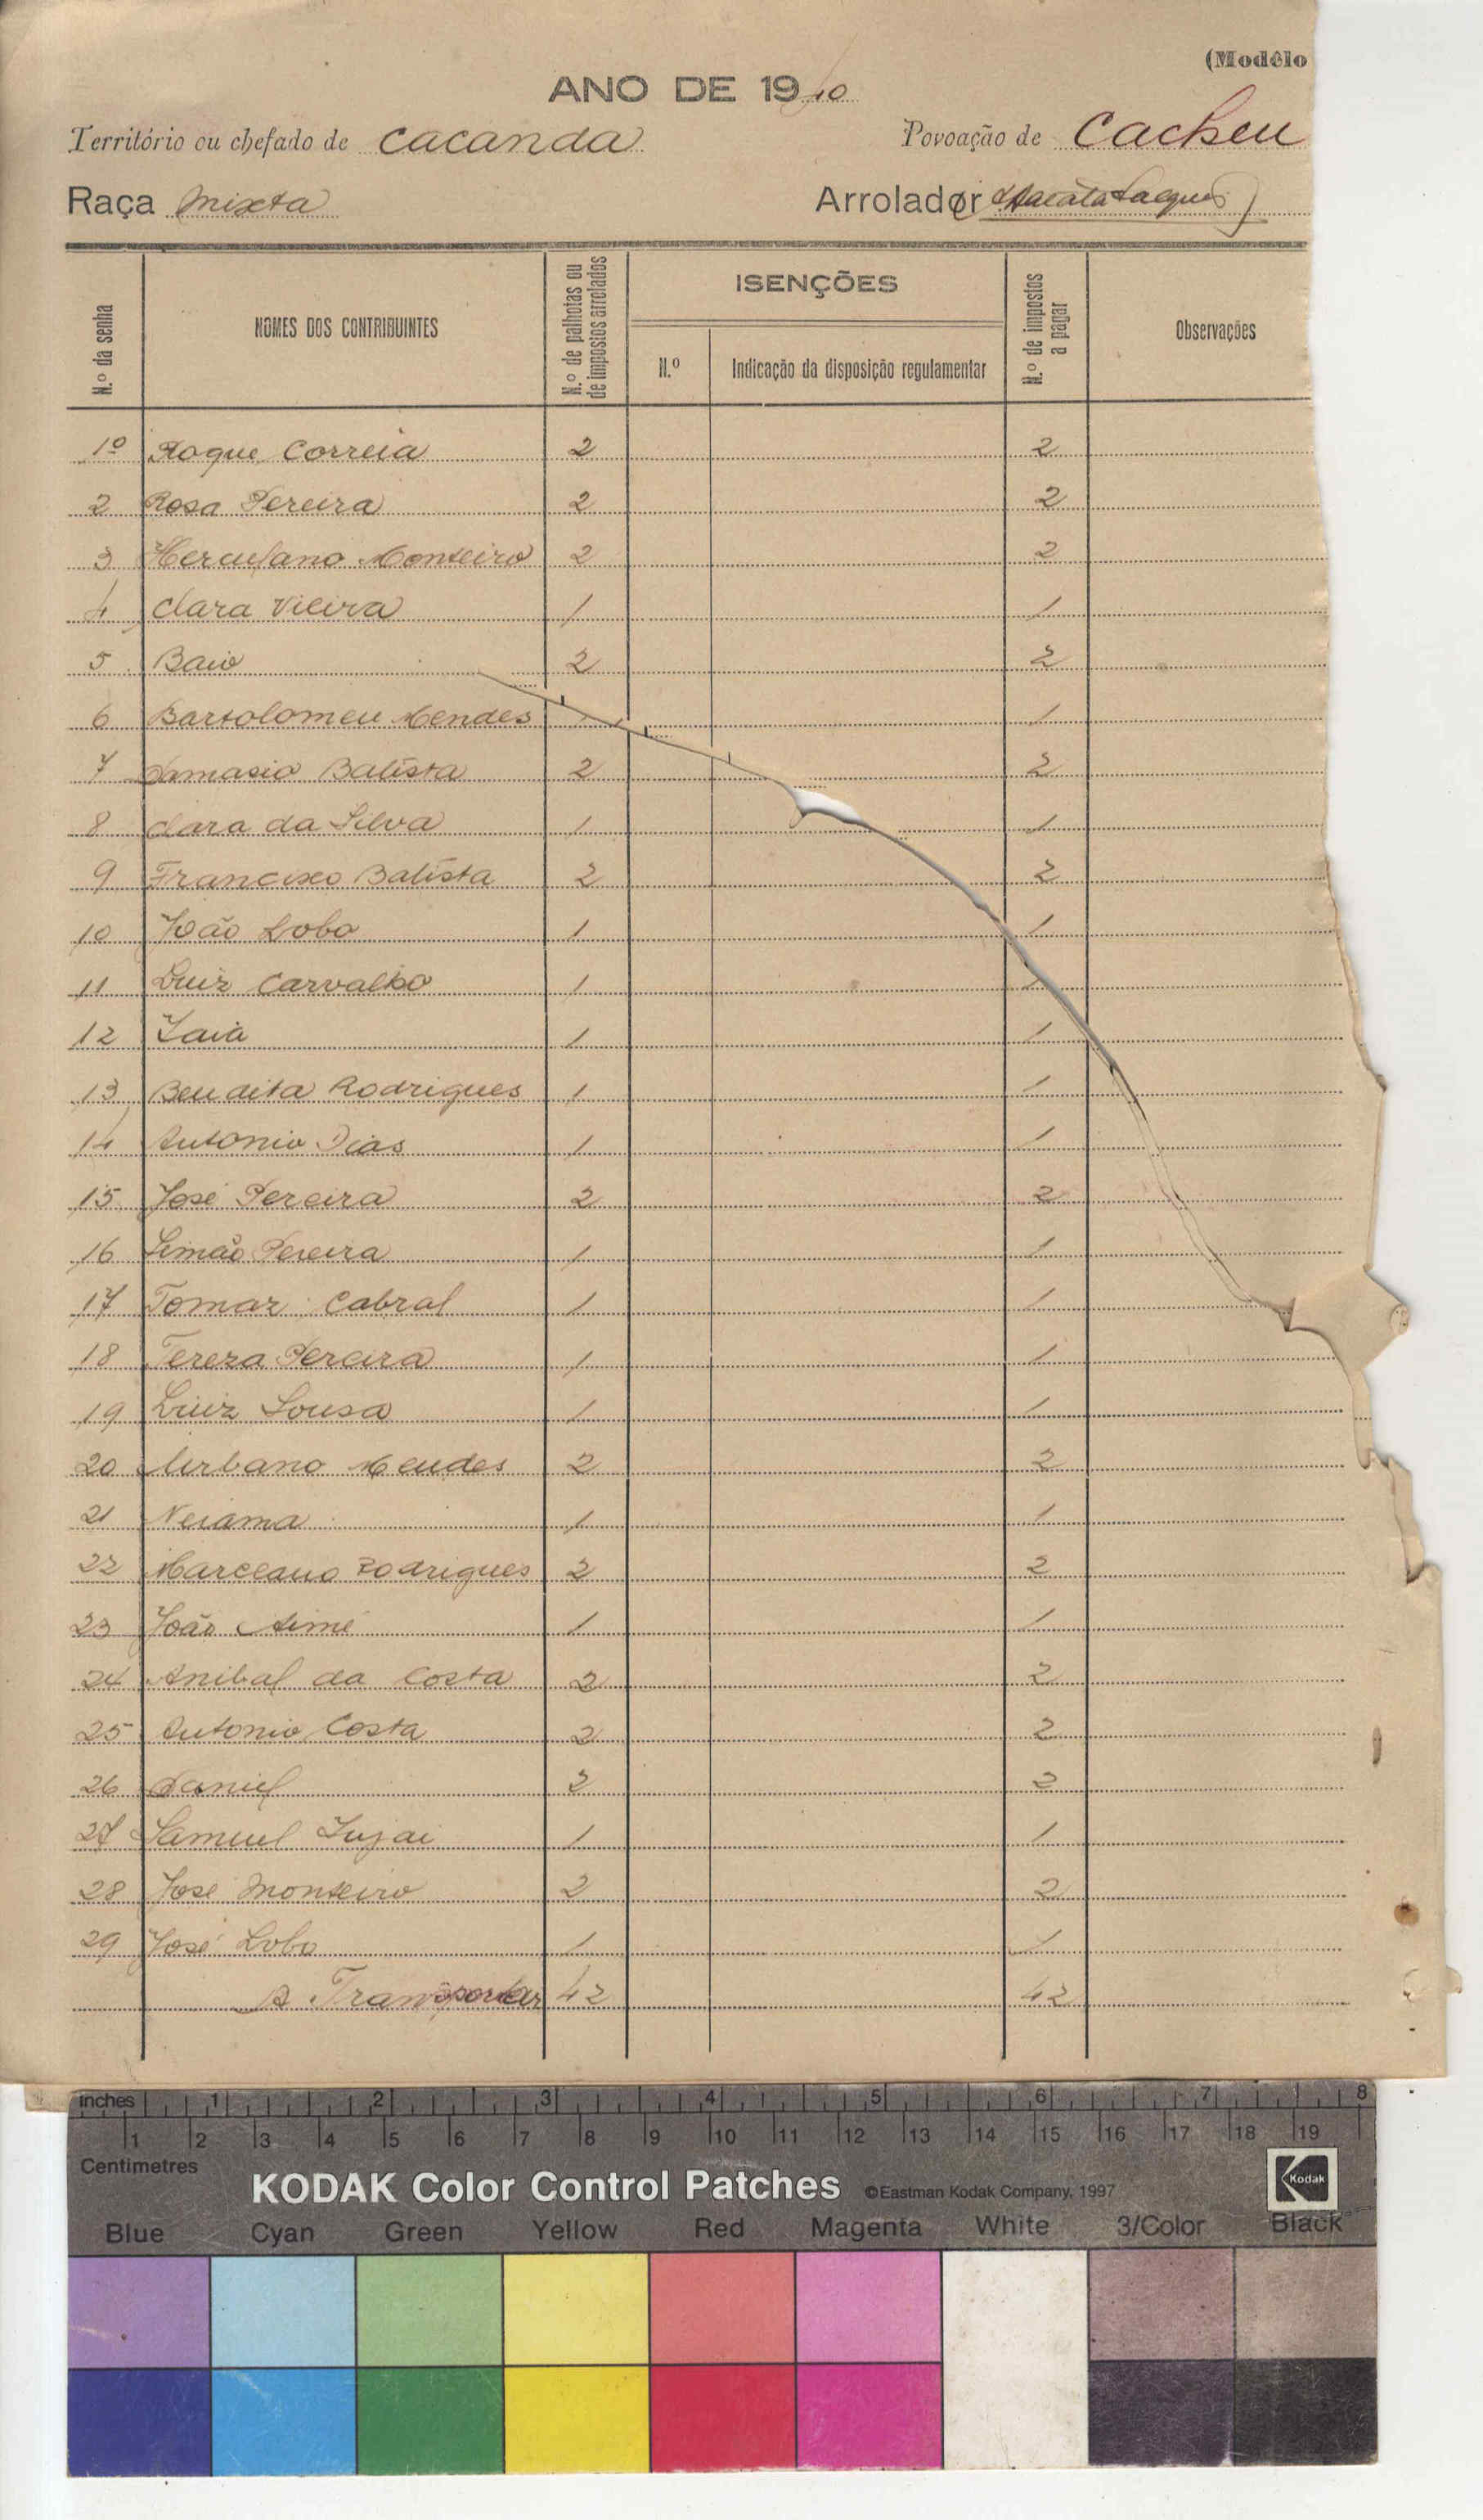 (Modêlo
ANO DE 1940
Território ou chefado de Cacanda Povoação de Cacheu
Raça Mixta Arrolador
N.º da senha NOMES DOS CONTRIBUINTES N.º de palhotas ou de impostos arrolados ISENÇÕES N.º de impostos a pagar Observações
N.º Indicação da disposição regulamentar
1º Roque Correia 2 2
2 Rosa Pereira 2 2
3 Herculano Monteiro 2 2
4 Clara Vieira 1 1
5 Baio 2 2
6 Bartolomeu Mendes 1 1
7 Damasio Batista 2 2
8 Clara da Silva 1 1
9 Francisco Batista 2 2
10 João Lobo 1 1
11 Luiz Carvalho 1 1
12 1 1
13 Bendita Rodrigues 1 1
14 Antonio Dias 1 1
15 José Pereira 2 2
16 Simão Pereira 1 1
17 Tomaz Cabral 1 1
18 Tereza Pereira 1 1
19 Luiz Sousa 1 1
20 Urbano Mendes 2 2
21 Neiama 1 1
22 Marceano Rodrigues 2 2
23 João 1 1
24 Anibal da Costa 2 2
25 Antonio Costa 2 2
26 Daniel 2 2
27 Samuel 1 1
28 José Monteiro 2 2
29 José Lobo 1 1
A Transportar 42 42
inches 1 2 3 4 5 6 7 8
1 2 3 4 5 6 7 8 9 10 11 12 13 14 15 16 17 18 19
Centimetres
KODAK Color Control Patches ©Eastman Kodak Company, 1997 Kodak
Blue Cyan Green Yellow Red Magenta White 3/Color Black